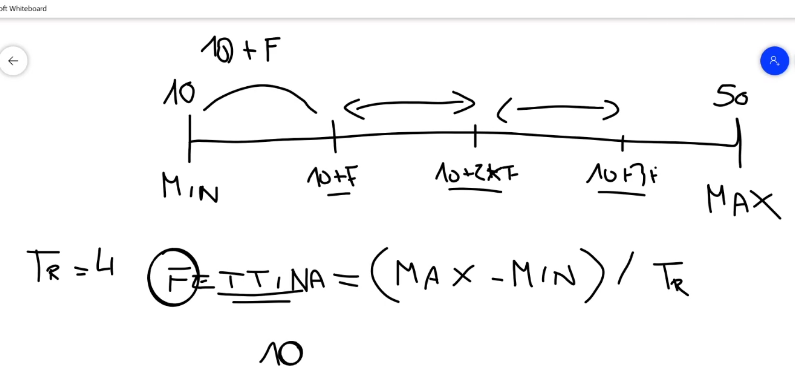 oft Whiteboard
10 + F
10 50
10+F 10+2*F 10+3F
MIN MAX
TR = 4 F = TTINA = (MAX - MIN) / TR
10